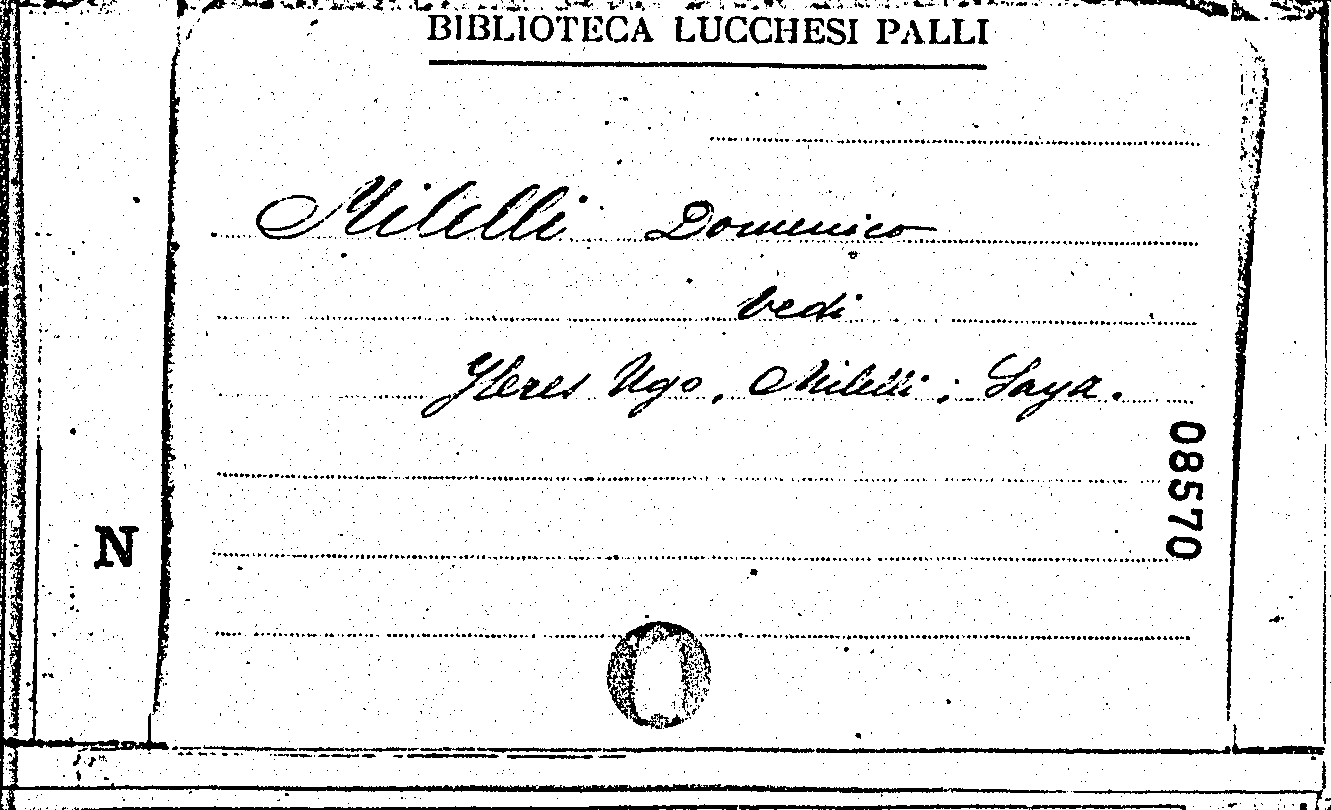 BIBLIOTECA LUCCHESI PALLI
Milelli Domenico
vedi
Fleres Ugo, Milelli; Saya.
08570
N